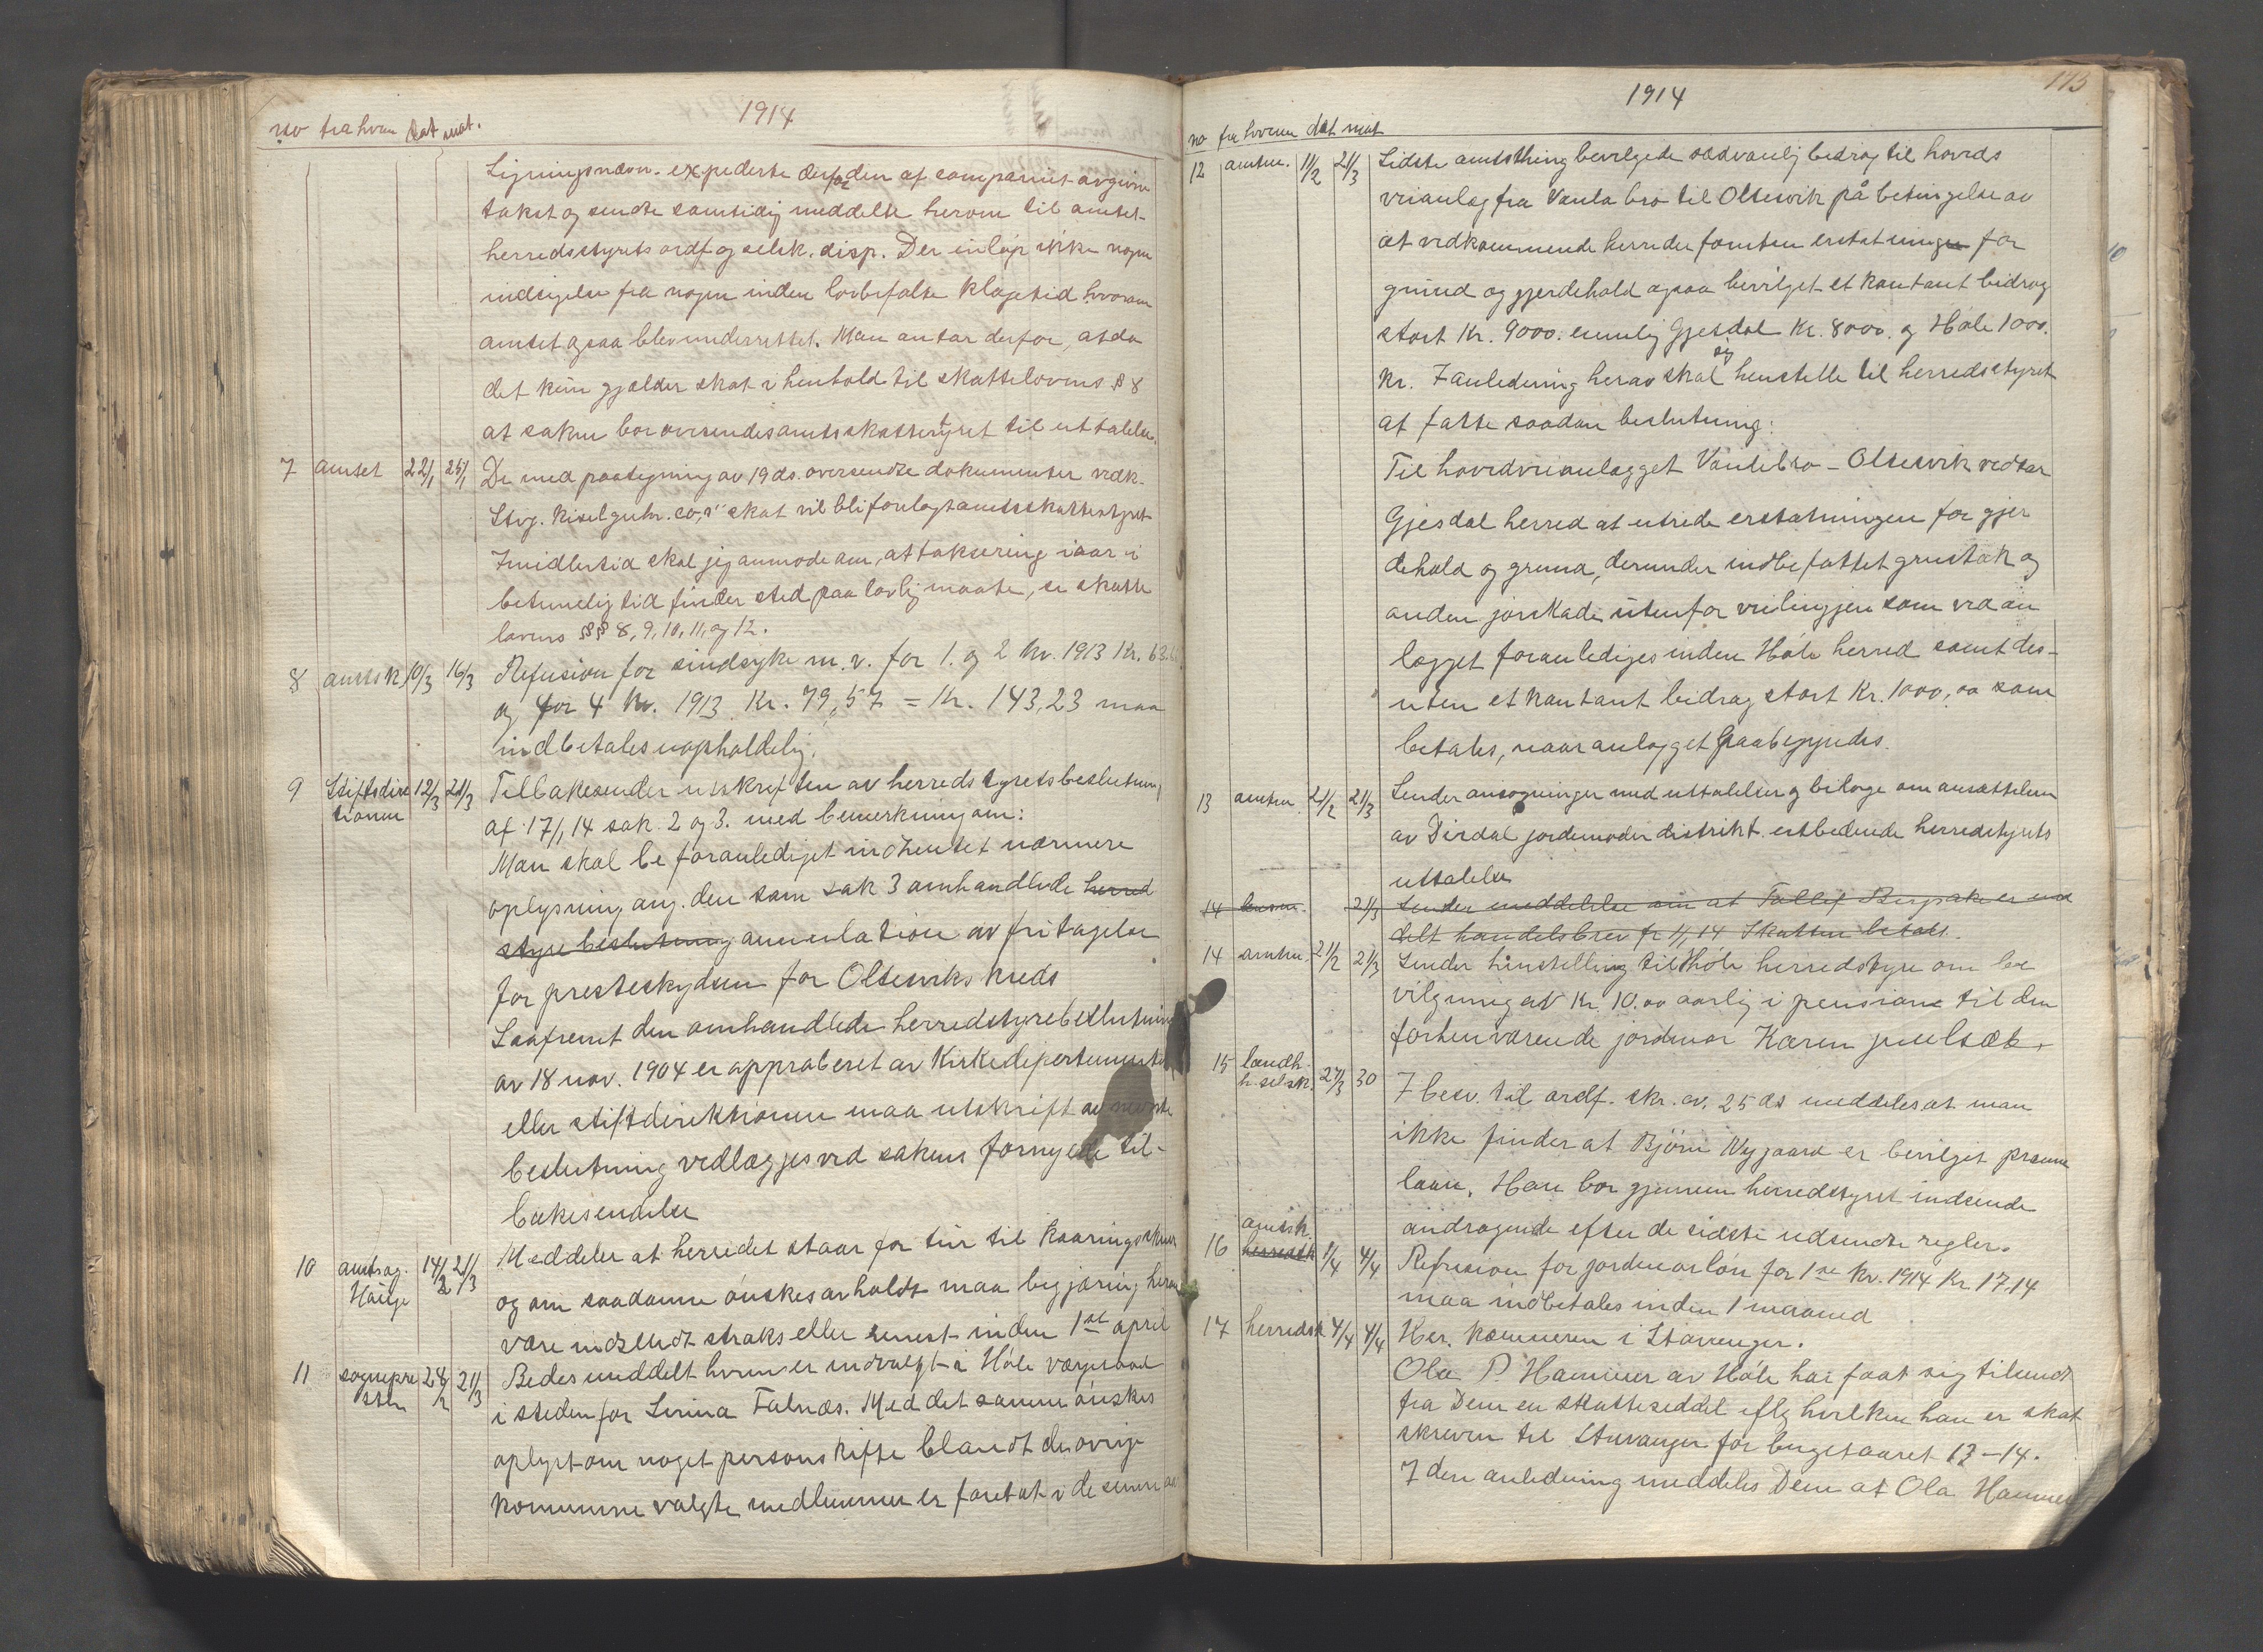 1914
no fra hvem dat mot.
Ligningsnævn. expederte derfor den af companiet avgivne
takst og sendte samtidig meddelse herom til amtet
herredsstyrets ordf og selsk. disp. Der inløp ikke nogen
indsigelse fra nogen inden lovbefalte klagetid hvorom
amtet ogsaa blev underrettet. Man antar derfor, at da
det kun gjælder skat i henhold til skattelovens § 8
at saken bør oversendes amtsskattestyret til uttalelse.
7 amtet 22/1 25/1 De med paategning av 19 ds. oversendte dokumenter vedk.
Stvg. Kiselguhr. co,s skat vil bli forelagt amtsskattestyret
Imidlertid skal jeg anmode om, at taksering iaar i
betimelig tid finder sted paa lovlig maate, se skatte
lovens §§ 8, 9, 10, 11, og 12.
8 amtsk. 10/3 16/3 Refusion for sindsyke m. v. for 1. og 2 kv. 1913 Kr. 63.
og for 4 kv. 1913 Kr. 79,57 = Kr. 143,23 maa
indbetales uopholdelig.
9 Stiftsdirek 12/3 21/3 Tilbakesender utskriften av herredstyrets beslutning
tionen af 17/1 14 sak. 2 og 3. med bemerkning om:
Man skal be foranlediget indhentet nærmere
oplysning ang. den som sak 3 omhandlede herred
styrebeslutning annulation av fritagelse
for presteskydsen for Oltesviks kreds
Saafremt den omhandlede herredstyrebeslutning
av 18 nov. 1904 er approberet av Kirkedepartementet
eller stiftdirektionen maa utskrift av nævnte
beslutning vedlægges ved sakens fornyede til-
bakesendelse
10 amtsag. 14/2 21/3 Meddeler at herredet staar for tur til kaaringsskuer
Hauge og om saadanne ønskes avholdt maa begjæring herom
være indsendt straks eller senest inden 1st april
11 sognepre 24/2 21/3 Bedes meddelt hvem er indvalgt i Høle vergeraad
sten i steden for Serina Falnæs. Med det samme ønskes
oplyst om noget personskifte blandt de øvrige
kommune valgte medlemmer er foretat i de senere
1914
173
no fra hvem dat mot
12 amtm. 11/2 21/3 Sidste amtsthing bevilgede sædvanlig bidrag til hoveds
veianlæg fra Vaula bro til Oltesvik på betingelse av
at vedkommende herreder foruten erstatningen for
grund og gjerdehold ogsaa bevilget et kontant bidrag
stort Kr. 9000. nemlig Gjesdal Kr. 8000. og Høle 1000.
kr. I anledning herav skal sig henstille til herredsstyret
at fatte saadan beslutning:
Til hovedveianlægget Vaulebro – Oltesvik vedtar
Gjesdal herred at utrede erstatningen for gjer
dehold og grund, derunder indbefattet grustak og
anden jorskade utenfor veilingjen som ved an
lægget foranlediges inden Høle herred samt des-
uten et kontant bidrag stort Kr. 1000,00 som
betales, naar anlægget paabegyndes.
13 amtm. 21/2 21/3 Sender ansøgninger med uttalelser og bilage om ansættelsen
av Dirdal jordemoder distrikt utbedende herredstyrets
uttalelse
14 lensm. 21/3 Sender meddelelse om at Tollef Bergsake er med
delt handelsbrev fr 1/1 14 Skatten betalt.
14 amtm. 21/2 21/3 Sender henstelling til Høle herredstyre om be
vilgning av Kr. 10.00 aarlig i pension til den
forhenværende jordmor Karen
15 landh. 27/3 30 I besv. til ordf. skr. av. 25 ds meddeles at man
h. selsk. ikke finder at Bjørn Nygaard er bevilget præmie
laan. Han bør gjennem herredstyret indsende
andragende efter de sidste udsendte regler.
amtsk.
16 herredsk 1/4 4/4 Refusion for jordmorløn for 1ste kv. 1914 Kr. 17.14
maa indbetales inden 1 maaned
17 herredsk 4/4 4/4 Her. kæmneren i Stavanger.
Ola P. Hammer av Høle har faat sig tilsendt
fra Dem en skatteseddel iflg hvilken han er skat
skreven til Stavanger for bugetaaret 13–14.
I den anledning meddeles Dem at Ola Hammer